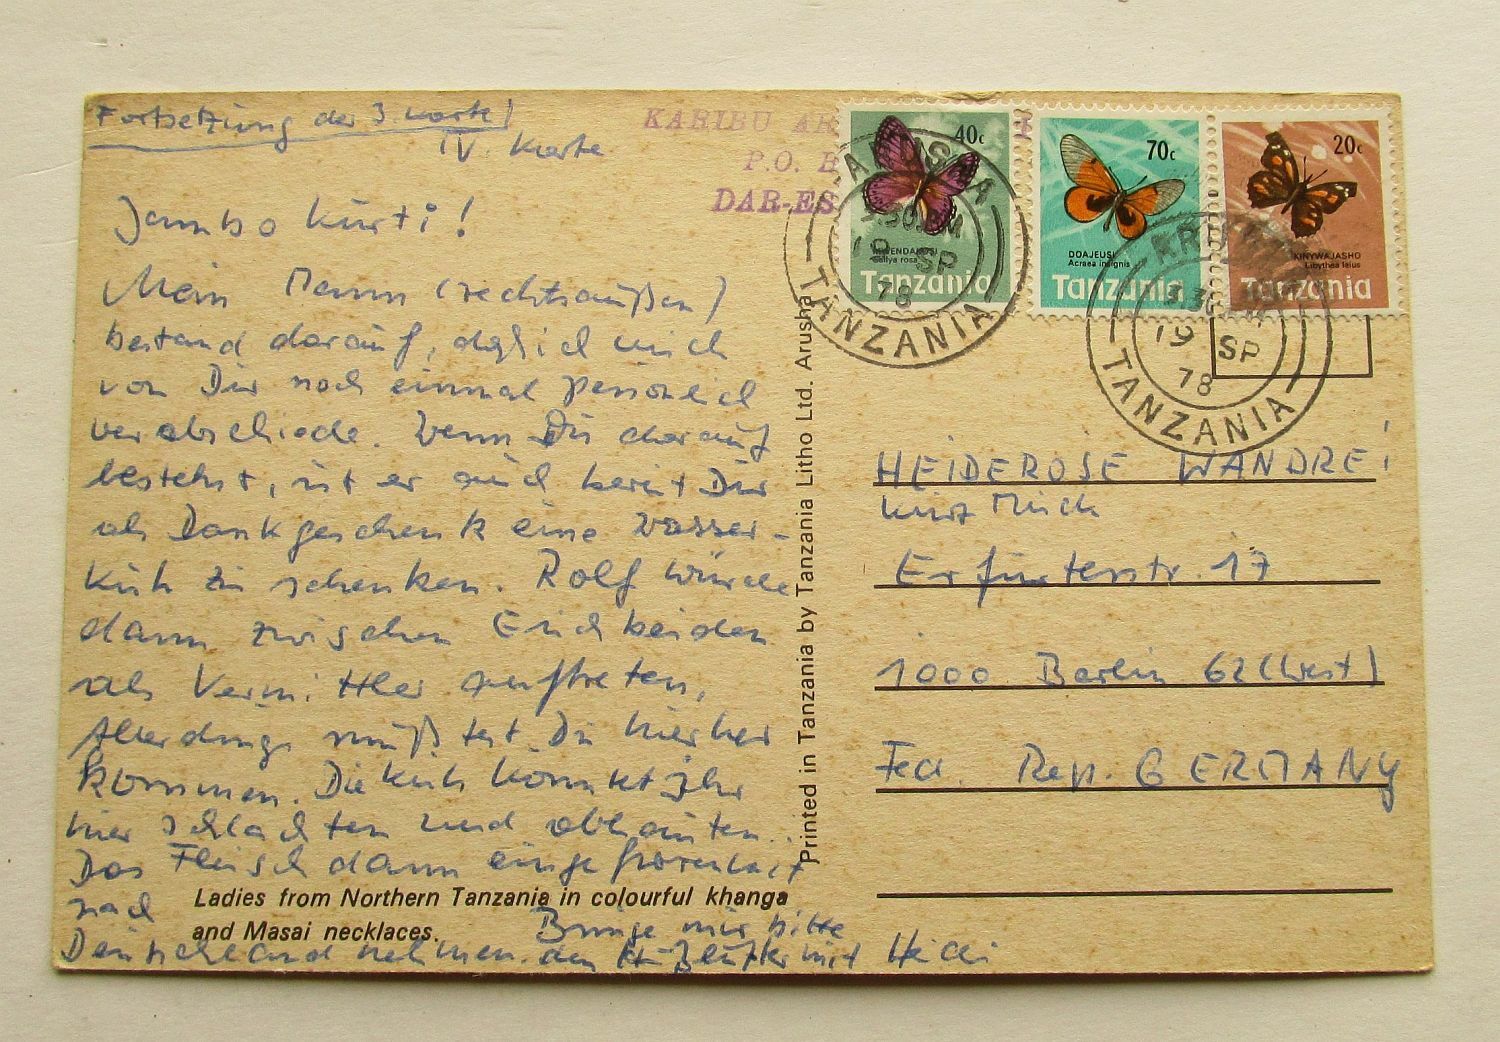 Fortsetzung der 3. Karte!
IV. Karte
KARIBU AR
P.O. B
DAR-ES
40c
Gallya rosa
Tanzania
70c
DOAJEUSI
Acraea insignis
Tanzania
20c
KINYWAJASHO
Libythea laius
Tanzania
ARUSHA
19 SP
78
TANZANIA
19 SP
78
TANZANIA
Jambo Kurti!
Mein Mann (rechtsaußen)
bestand darauf, daß ich mich
von Dir noch einmal persönlich
verabschiede. Wenn Du darauf
bestehst, ist er auch bereit Dir
als Dankgeschenk eine Wasser-
kuh zu schenken. Rolf würde
dann zwischen Euch beiden
als Vermittler auftreten,
Allerdings müßtest Du hierher
kommen. Die Kuh könntet Ihr
hier schlachten und abhäuten.
Das Fleisch dann eingefroren
nach
Deutschland nehmen.
Bringe mir bitte
den mit Heidi
Ladies from Northern Tanzania in colourful khanga
and Masai necklaces.
Printed in Tanzania by Tanzania Litho Ltd. Arusha
HEIDEROSE WANDREI
Kurz Münch
Erfurterstr. 17
1000 Berlin 62 (West)
Fed. Rep. GERMANY